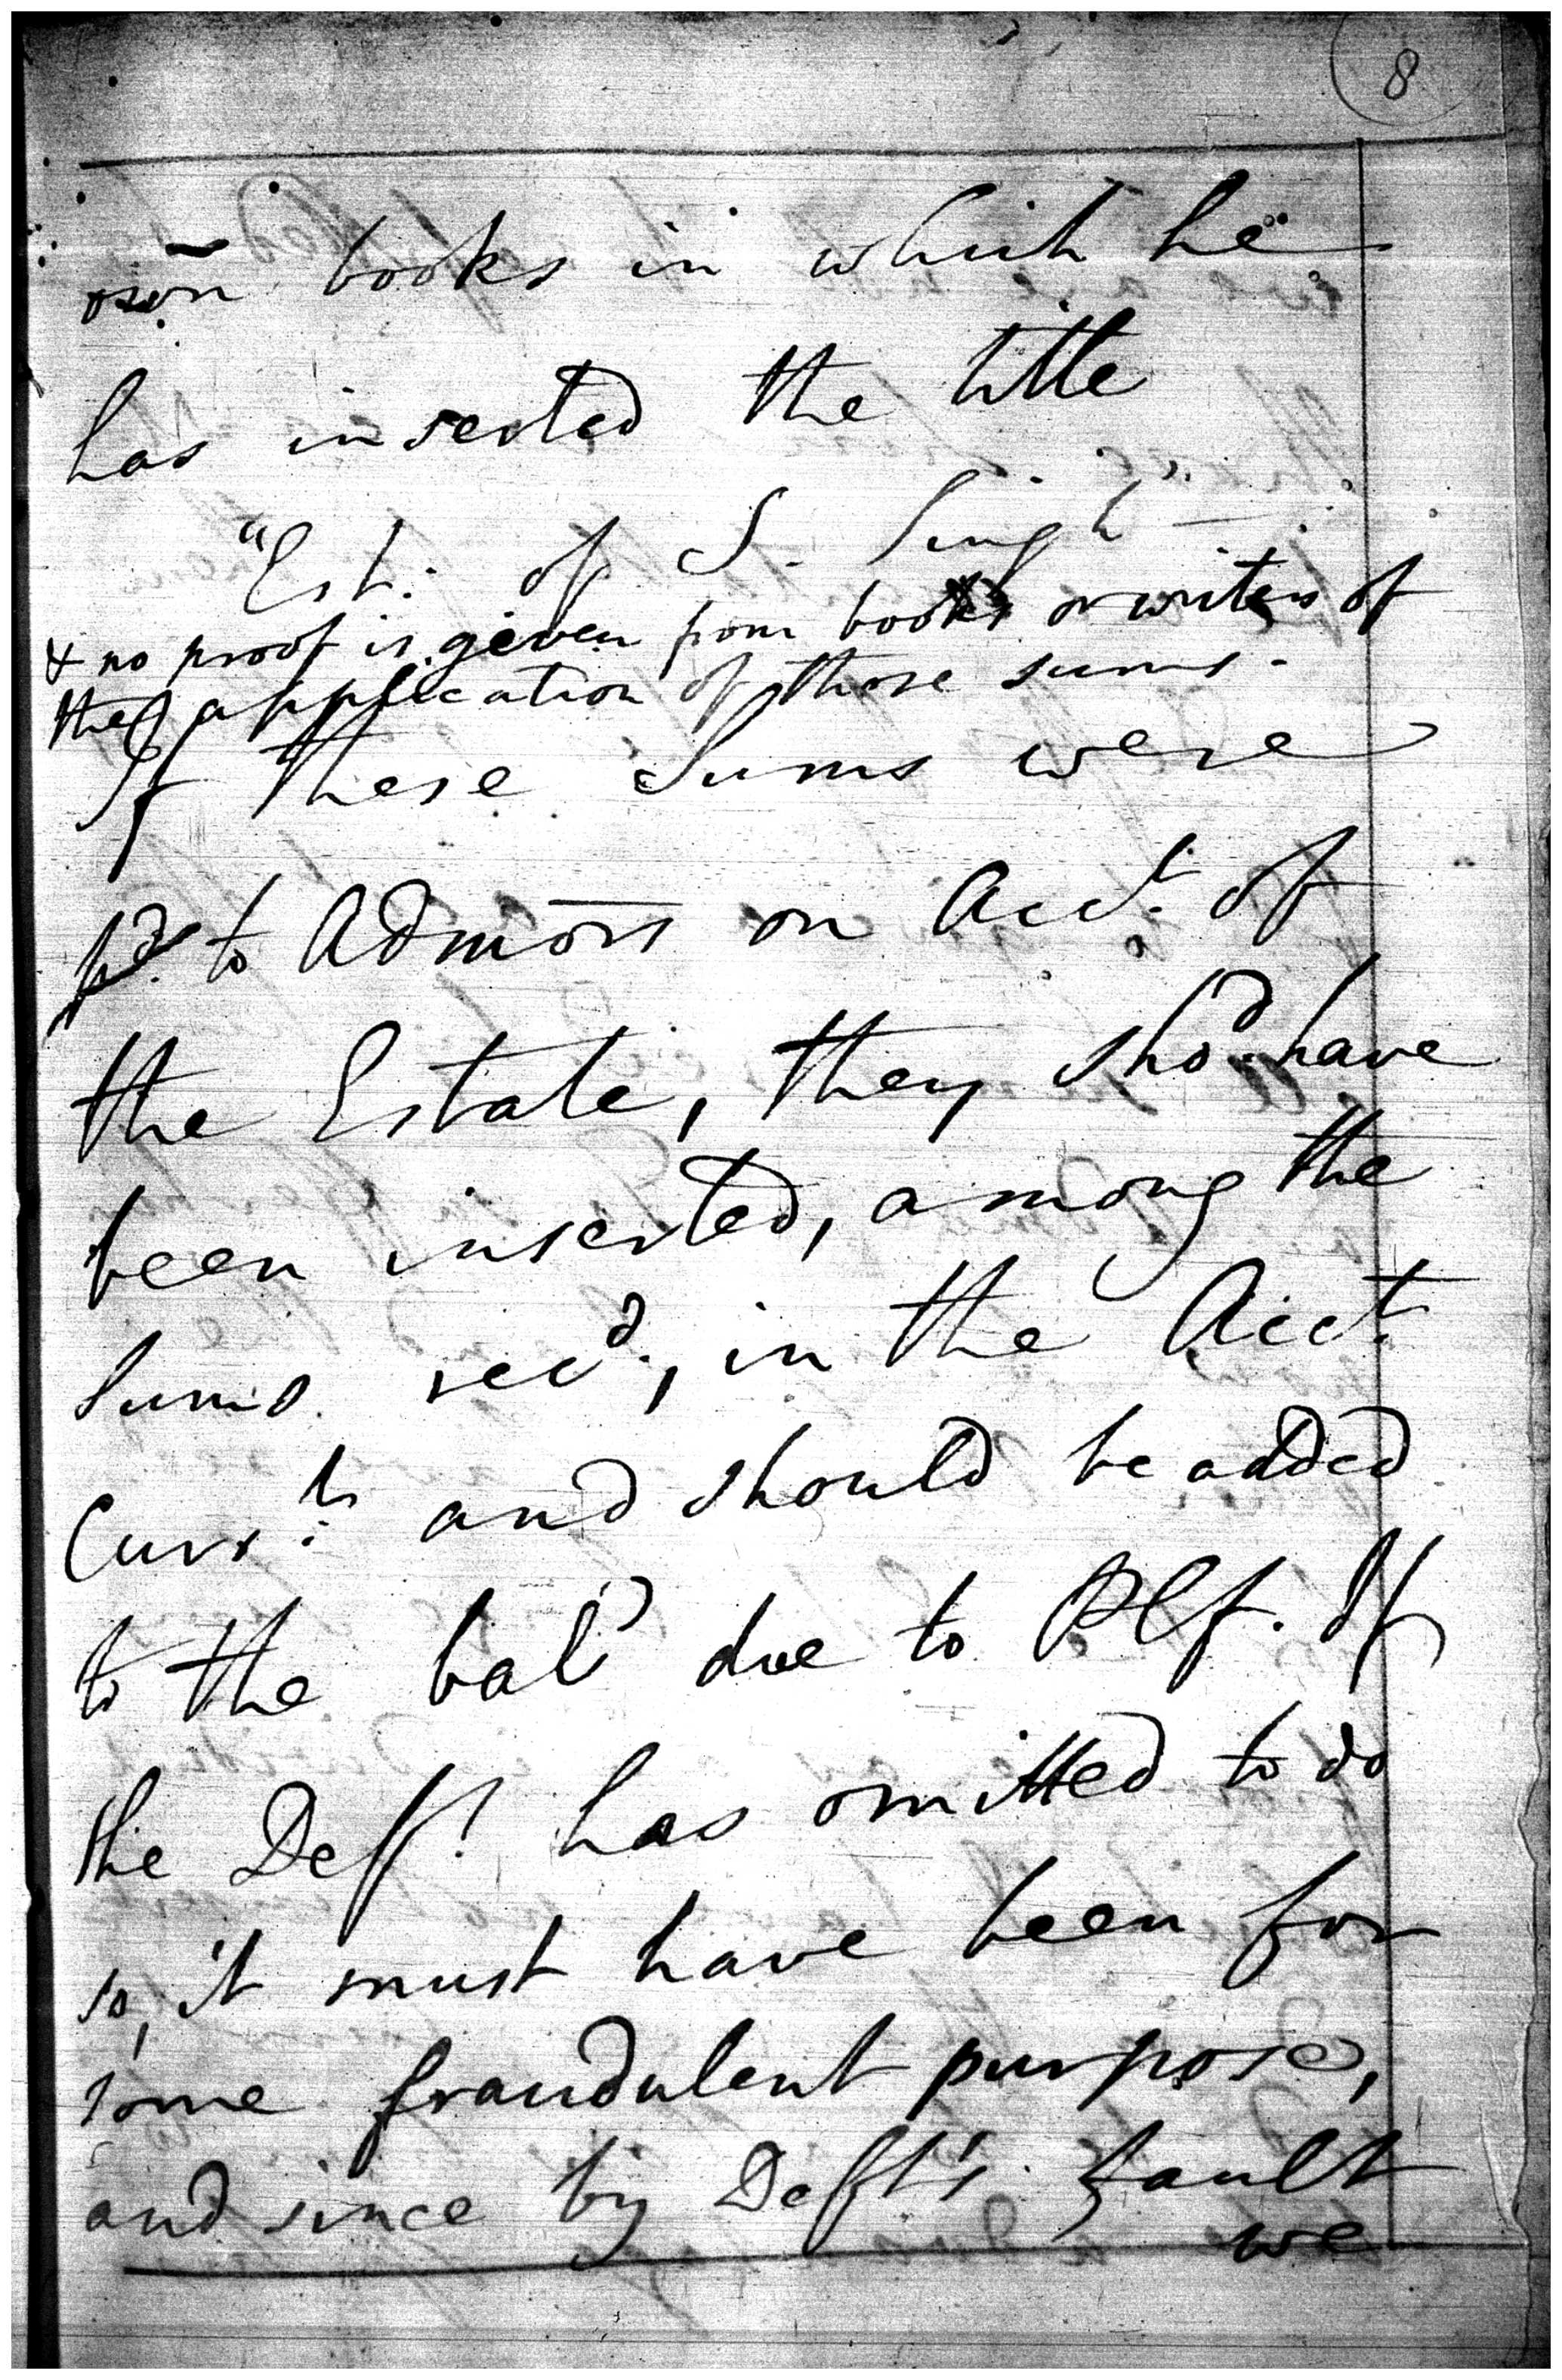 8
own books in which he
has inserted the title
"Est. of S. Singh"
& no proof is given from books or writers of
the application of those sums.
If these Sums were
pd. to Admors on Acct. of
the Estate, they shod. have
been inserted, among the
Sums recd., in the Acct.
Currts. and should be added
to the bale due to Plf. If
the Deft. has omitted to do
so, it must have been for
some fraudulent purpose,
and since by Deft's fault
we